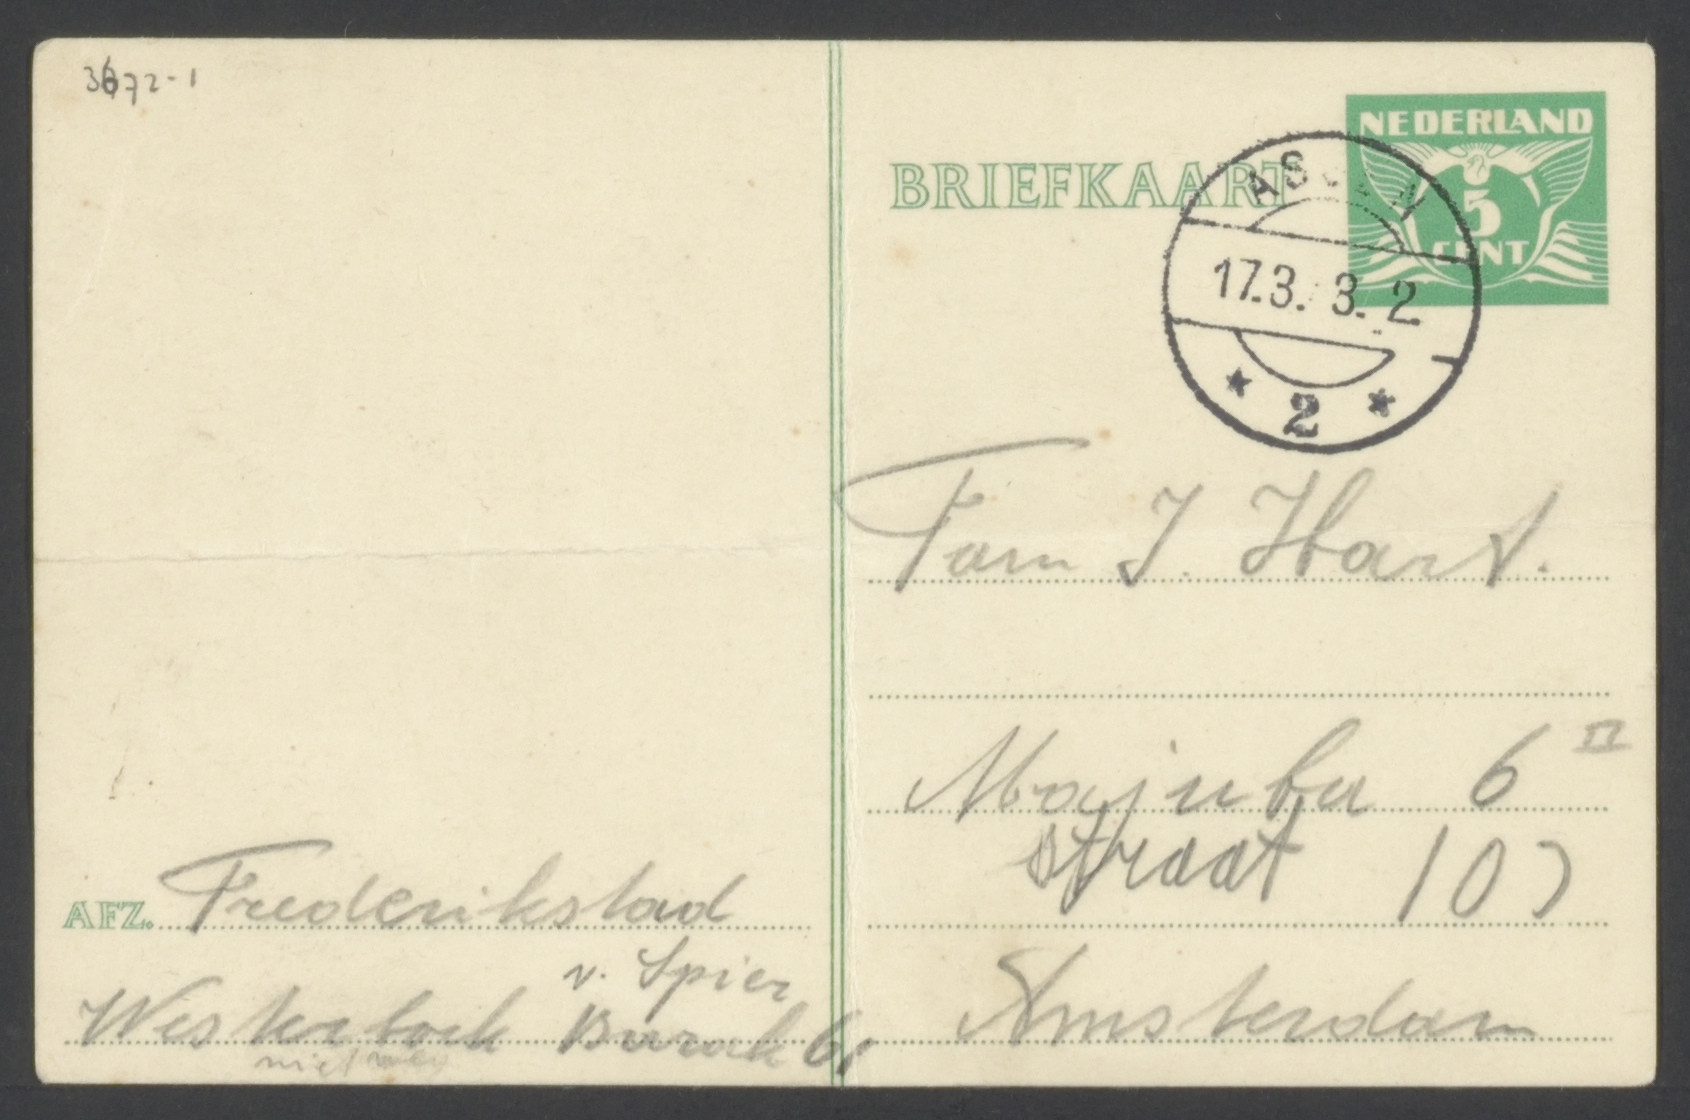 3672-1
BRIEFKAART
NEDERLAND
5
CENT
ASSEN
17.3. 3. 2
* 2 *
Fam J. Hart.
Majuba 6 II
straat 107
Amsterdam
AFZ. Frederikstad
v. Spier
Westerbork Barak 61
niet